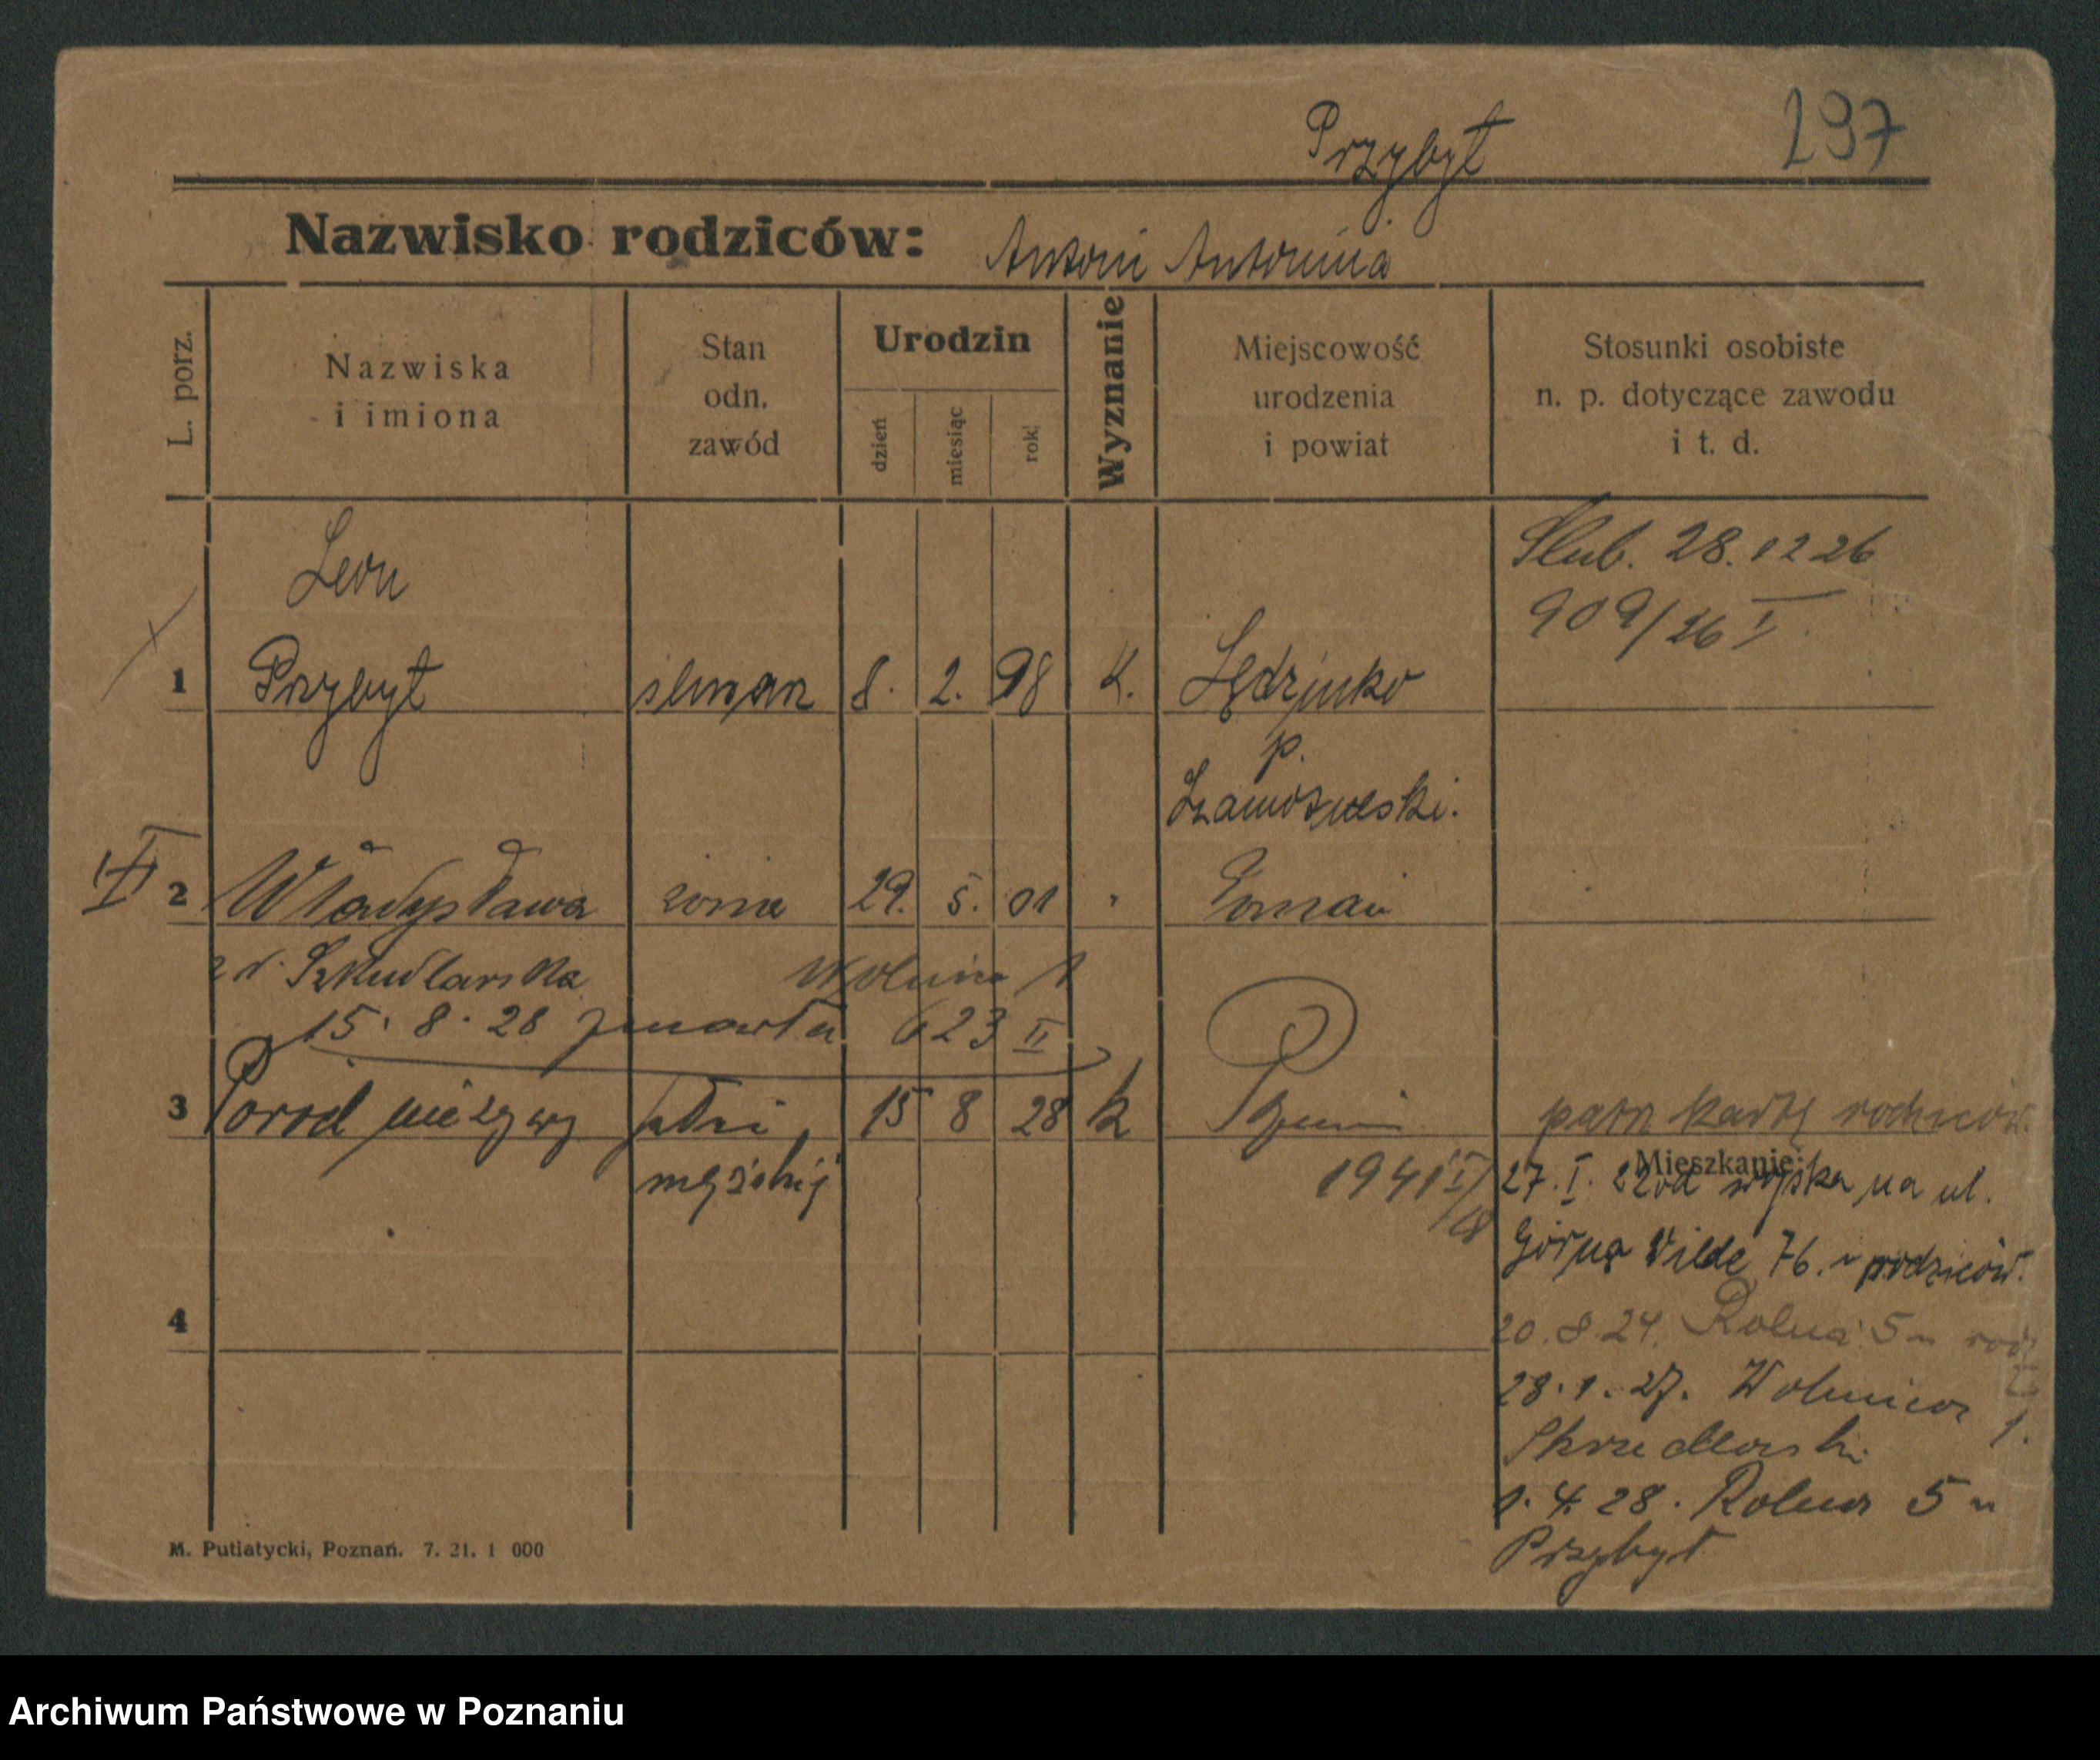 Przybył
297
Nazwisko rodziców: Antoni Antonina
L. porz.
Nazwiska
i imiona
Stan
odn.
zawód
Urodzin
dzień
miesiąc
rok
Wyznanie
Miejscowość
urodzenia
i powiat
Stosunki osobiste
n. p. dotyczące zawodu
i t. d.
Leon
Ślub. 28.12 26
909/26 I
1 Przybył 8. 2. 98 K.
p.
2 Władysława żona 29. 5. 01 "
z d. Szkudlarska
15. 8. 28 zmarła 623 II
3 Poród nieżywy płci 15 8 28 k
patrz kartę rodziców.
męskiej
1941
Mieszkanie:
27. I. 22 od wojska na ul.
Górna Wilda 76. u rodziców.
20. 8. 24. Rolna 5 u rodz
28. 1. 27. Wolnica 1.
4
1. 4. 28. Rolna 5 u
Przybył
M. Putiatycki, Poznań. 7. 21. 1 000
Archiwum Państwowe w Poznaniu